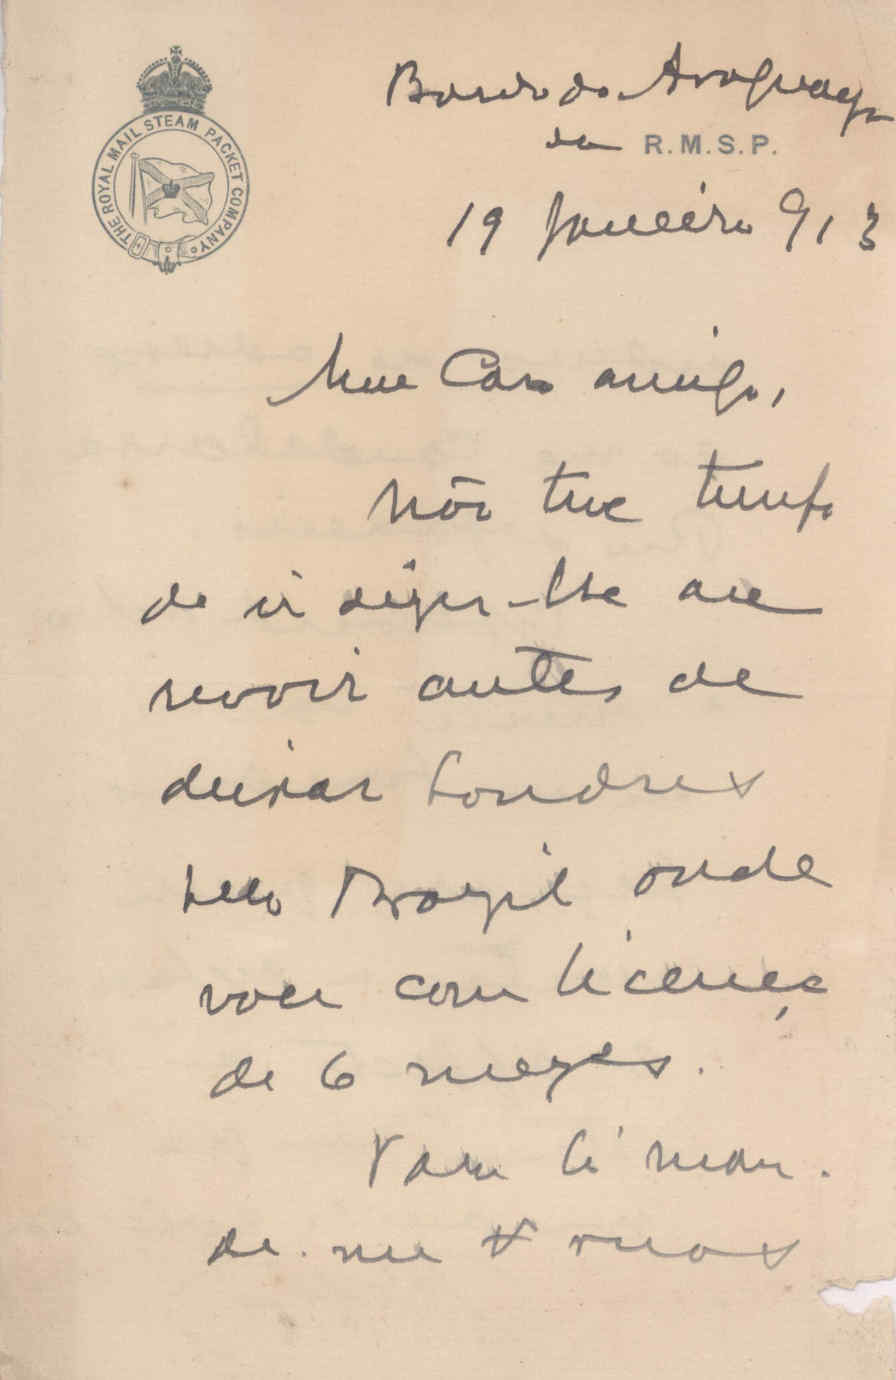 THE ROYAL MAIL STEAM PACKET COMPANY.
Bordo do Araguaya
da R.M.S.P.
19 Janeiro 913
Meu Caro amigo,
Não tive tempo
de ir dizer-lhe au
revoir antes de
deixar Londres
pelo Brazil onde
vou com licença
de 6 mezes.
de me